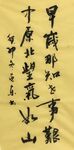 早岁那知世事艰
中原北望气如山